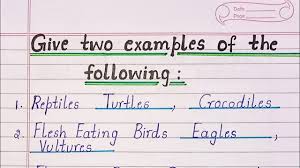 Date
Page
Give two examples of the
following :
1. Reptiles Turtles , Crocodiles
2. Flesh Eating Birds Eagles ,
Vultures